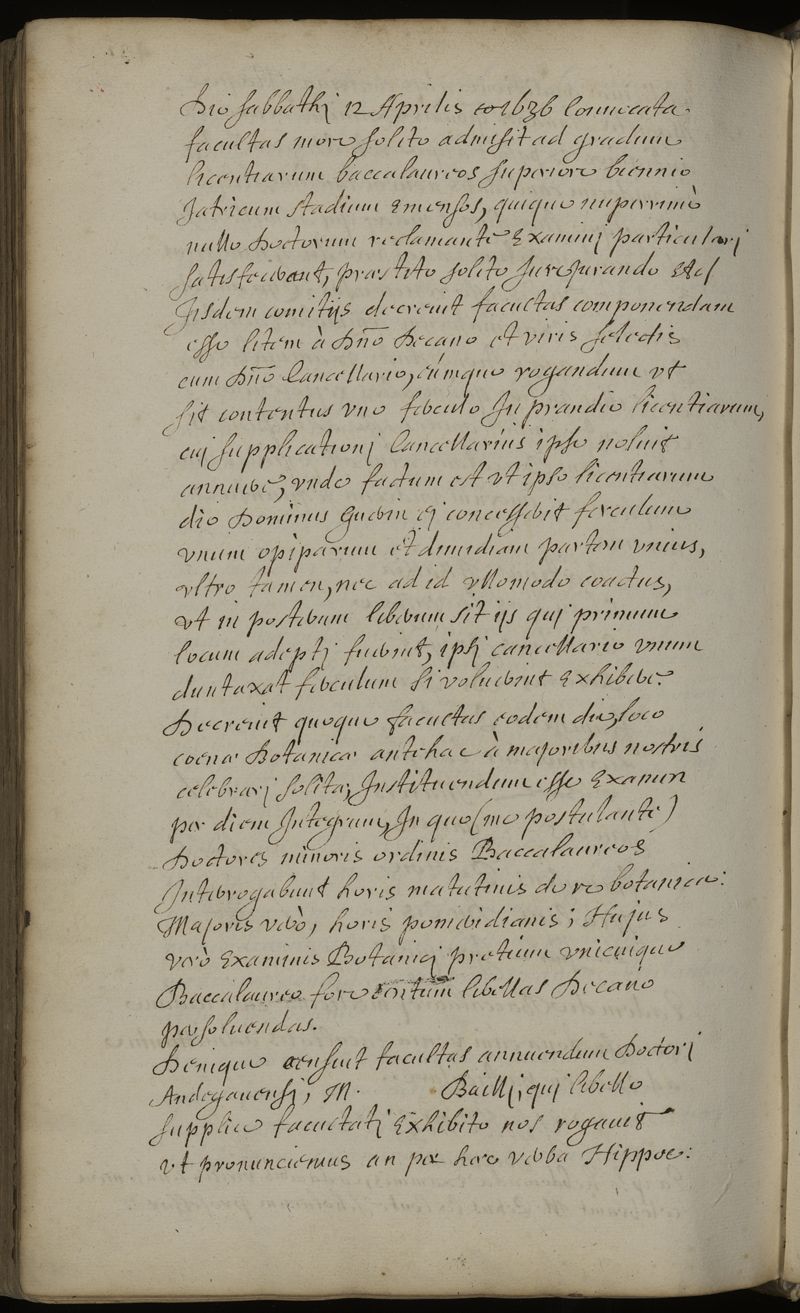 Die sabbathj 12 Aprilis 1636 Conuocata
facultas more solito admisit ad gradum
licentiarum baccalaureos superiore biennio
Jatricum stadium Emensos, quique nuperrimè
nullo Doctorum reclamante Examinj particularj
satisfecerant, præstito solito Jurejurando
Jisdem comitijs decreuit facultas componendam
esse litem à Dño Decano et viris selectis
cum Dño Cancellario, eúmque rogandum vt
sit contentus vno ferculo In prandio licentiarum,
cuj supplicationj Cancellarius ipse noluit
annuere, vnde factum est vt ipso licentiarum
die Dominus Guerin ej concesserit ferculum
vnum opiparum et dimidiam partem vnius,
vltro tamen, nec ad id vllomodo coactus,
vt in posterum liberum sit ijs quj primum
locum adeptj fuerint, ipsj cancellario vnum
duntaxat ferculum si voluerint Exhibere.
Decreuit quoque facultas eodem die, loco
coenæ Botanicæ antehac à majoribus nostris
celebrarj solitæ, Instituendum esse Examen
per diem Integrum, In quo (me postulante)
Doctores minoris ordinis Baccalaureos
Interrogabunt horis matutinis de re botanica:
Majoris verò, horis pomeridianis; Hujus
verò Examinis Botanicj pretium vnicuique
Baccalaureo fore centum libellas Decano
persoluendas.
Denique censuit facultas annuendum Doctorj
Andegauensj, M. Baillj, quj libello
supplice facultatj Exhibito nos rogauit
vt pronunciemus an per hæc verba Hippoc: